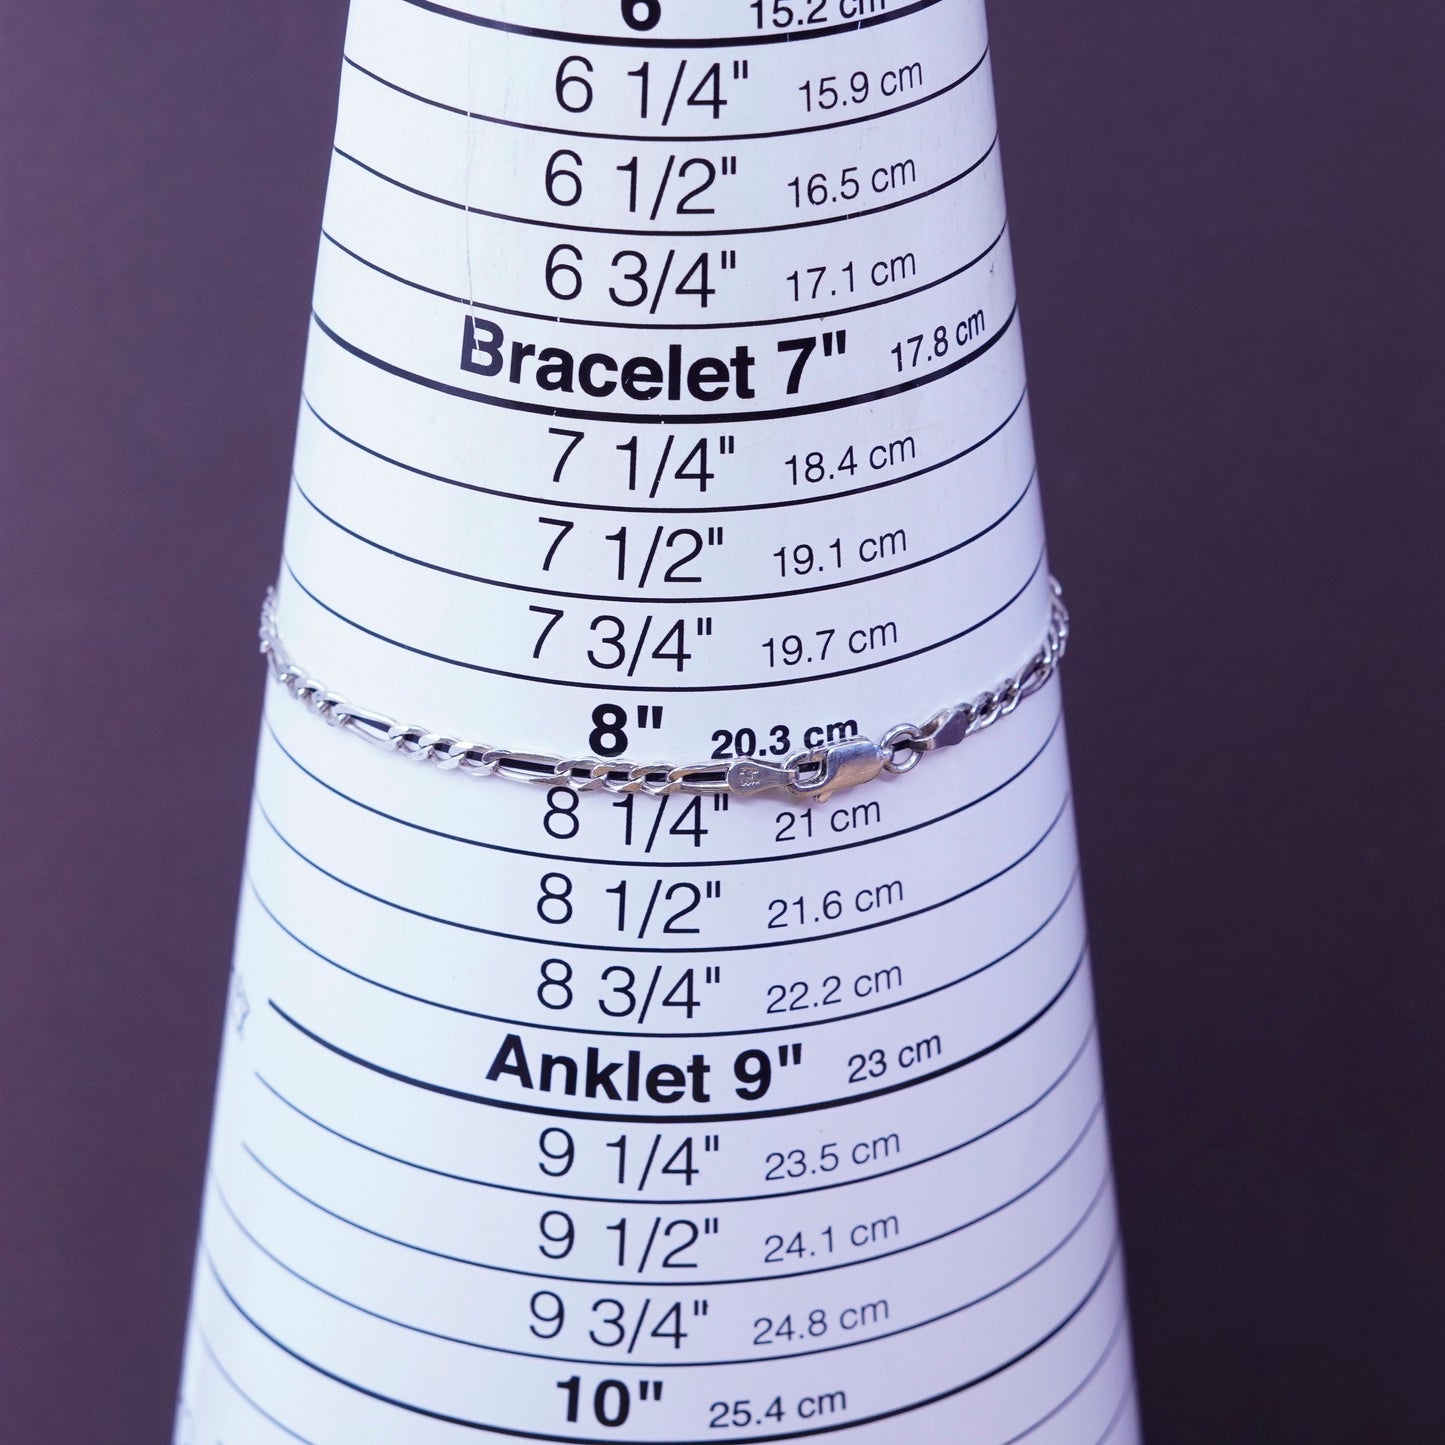 6" 15.2 cm
6 1/4" 15.9 cm
6 1/2" 16.5 cm
6 3/4" 17.1 cm
Bracelet 7" 17.8 cm
7 1/4" 18.4 cm
7 1/2" 19.1 cm
7 3/4" 19.7 cm
8" 20.3 cm
8 1/4" 21 cm
8 1/2" 21.6 cm
8 3/4" 22.2 cm
Anklet 9" 23 cm
9 1/4" 23.5 cm
9 1/2" 24.1 cm
9 3/4" 24.8 cm
10" 25.4 cm